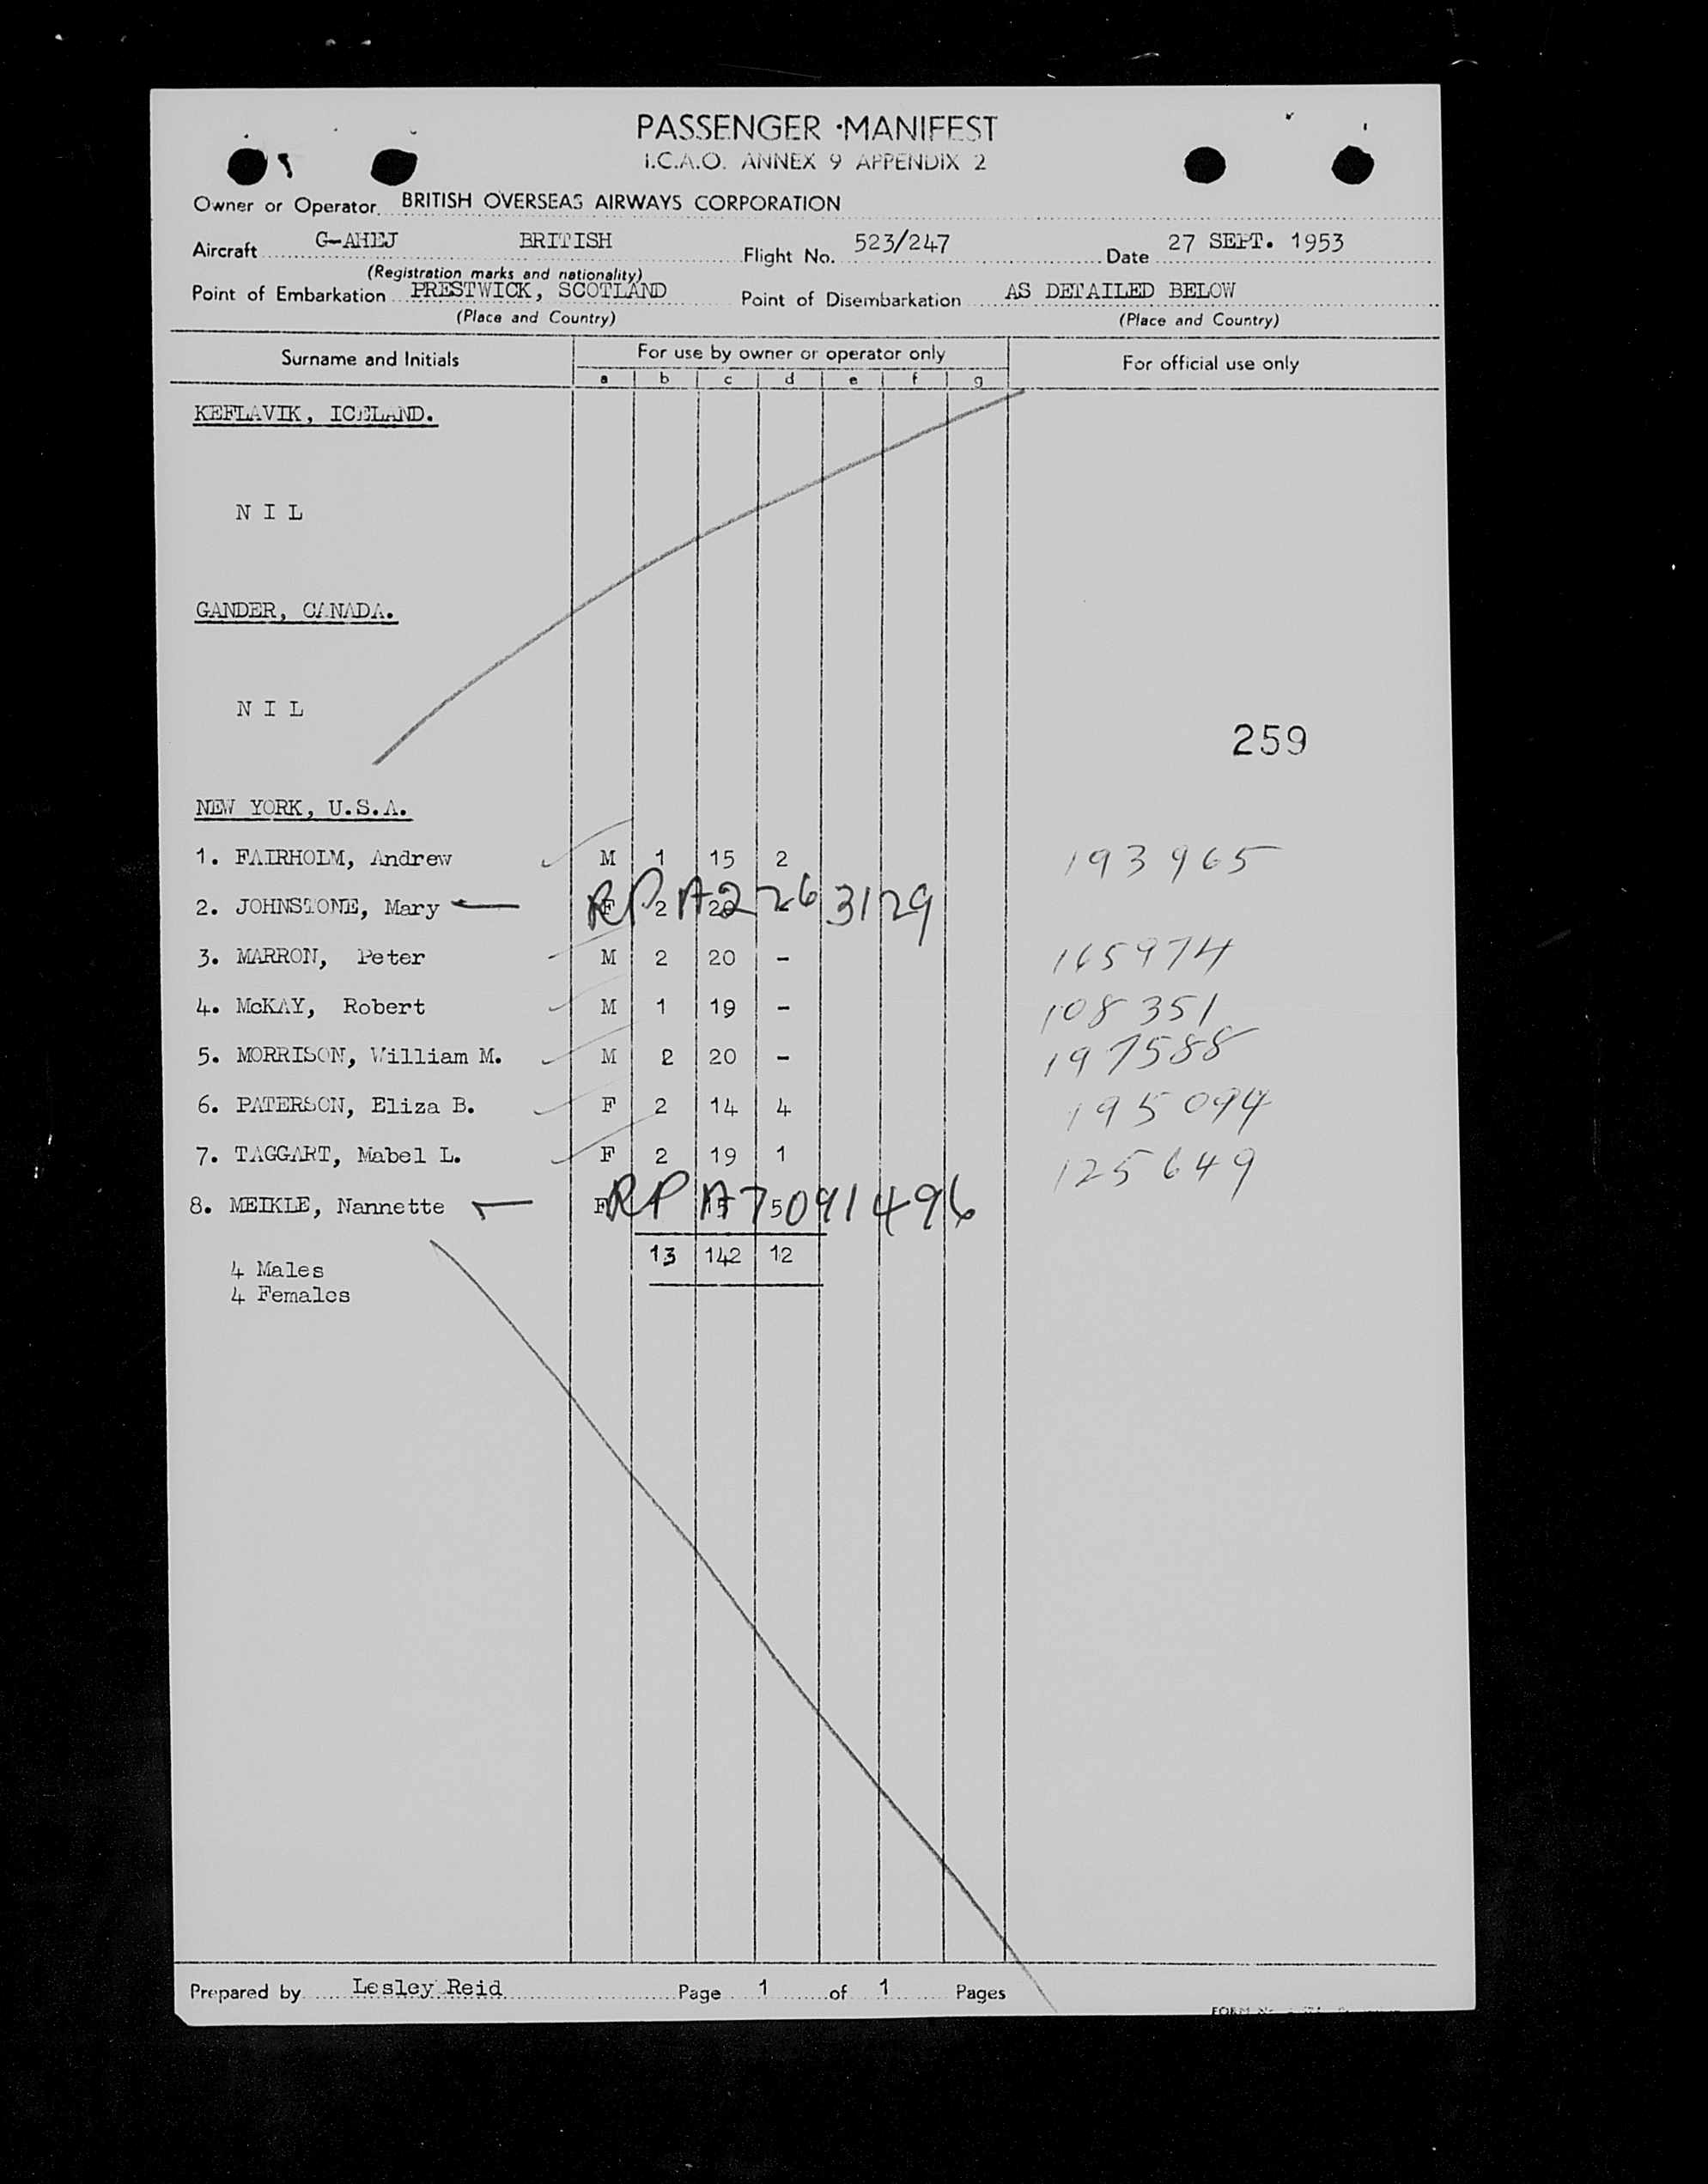 PASSENGER MANIFEST
I.C.A.O. ANNEX 9 APPENDIX 2
Owner or Operator BRITISH OVERSEAS AIRWAYS CORPORATION
Aircraft G-AHEJ BRITISH Flight No. 523/247 Date 27 SEPT. 1953
(Registration marks and nationality)
Point of Embarkation PRESTWICK, SCOTLAND Point of Disembarkation AS DETAILED BELOW
(Place and Country) (Place and Country)
Surname and Initials For use by owner or operator only For official use only
a b c d e f g
KEFLAVIK, ICELAND.
N I L
GANDER, CANADA.
N I L
259
NEW YORK, U.S.A.
1. FAIRHOLM, Andrew M 1 15 2 193965
2. JOHNSTONE, Mary F 2 RP A2263129
3. MARRON, Peter M 2 20 - 165974
4. McKAY, Robert M 1 19 - 108351
5. MORRISON, William M. M 2 20 - 197588
6. PATERSON, Eliza B. F 2 14 4 195094
7. TAGGART, Mabel L. F 2 19 1 125649
8. MEIKLE, Nannette F RP A7 5091496
13 142 12
4 Males
4 Females
Prepared by Lesley Reid Page 1 of 1 Pages